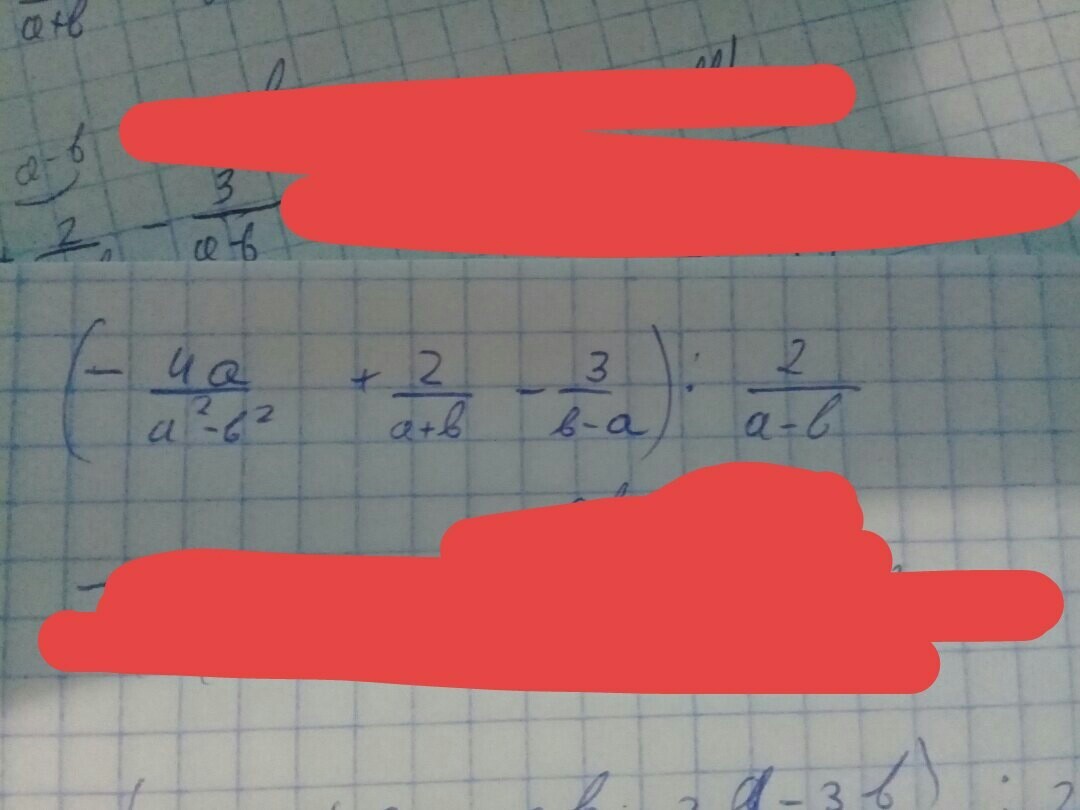 a+b
a-b
2 - 3/(a-b)
(- 4a/(a²-b²) + 2/(a+b) - 3/(b-a)) : 2/(a-b)
-3b) :